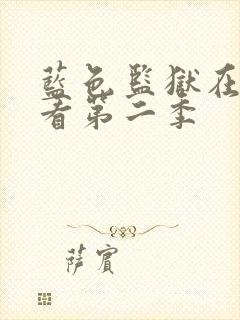 藍色監獄在
看第二季
萨賓